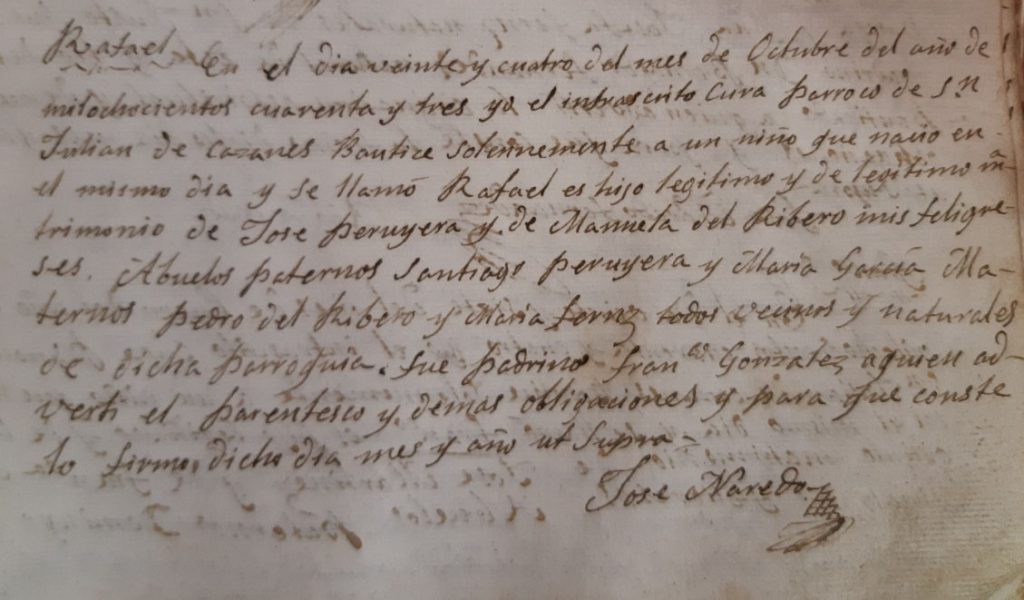 Rafael En el dia veinte y cuatro del mes de Octubre del año de
milochocientos cuarenta y tres yo el infrascrito Cura Parroco de Sn
Julian de Cazanes Bautice solennemente a un niño que nacio en
el mismo dia y se llamó Rafael es hijo legitimo y de legitimo ma-
trimonio de Jose Peruyera y de Manuela del Ribero mis feligre-
ses. Abuelos paternos Santiago Peruyera y Maria Garcia Ma-
ternos Pedro del Ribero y Maria fernz todos vecinos y naturales
de dicha Parroquia. fue Padrino fran.co Gonzalez aquien ad-
verti el parentesco y demas obligaciones y para que conste
lo firmo dicho dia mes y año ut supra-
Jose Naredo